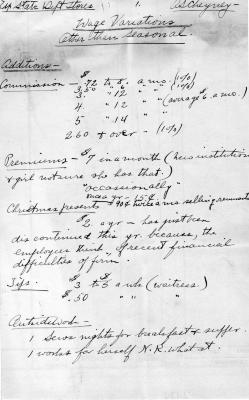 State Dept Stores 1. A S Cheyney-
Wage Variations
Other than Seasonal.
Additions-
Commission - $.72 to $8. a mo. (1%)
3.50 " 6 " " (1%)
3. " 12 " "
4. " 12 " " (average $6 a mo.)
5 " 14 " "
260 + over - (1%)
Premiums - $7 in a month (hero institution
+ girl not sure she has that.)
"occassionally"
a yr - 15¢
Christmas presents + 90¢ twice a mo. selling
$2 a yr - has just been
discontinued this yr. because, the
employees think, of recent financial
difficulties of firm.
Tips. $3 to $5 a wk (waitress)
$.50 " "
Outside work -
1 Serves nights for breakfast & supper.
1 works for herself N.R. what at.